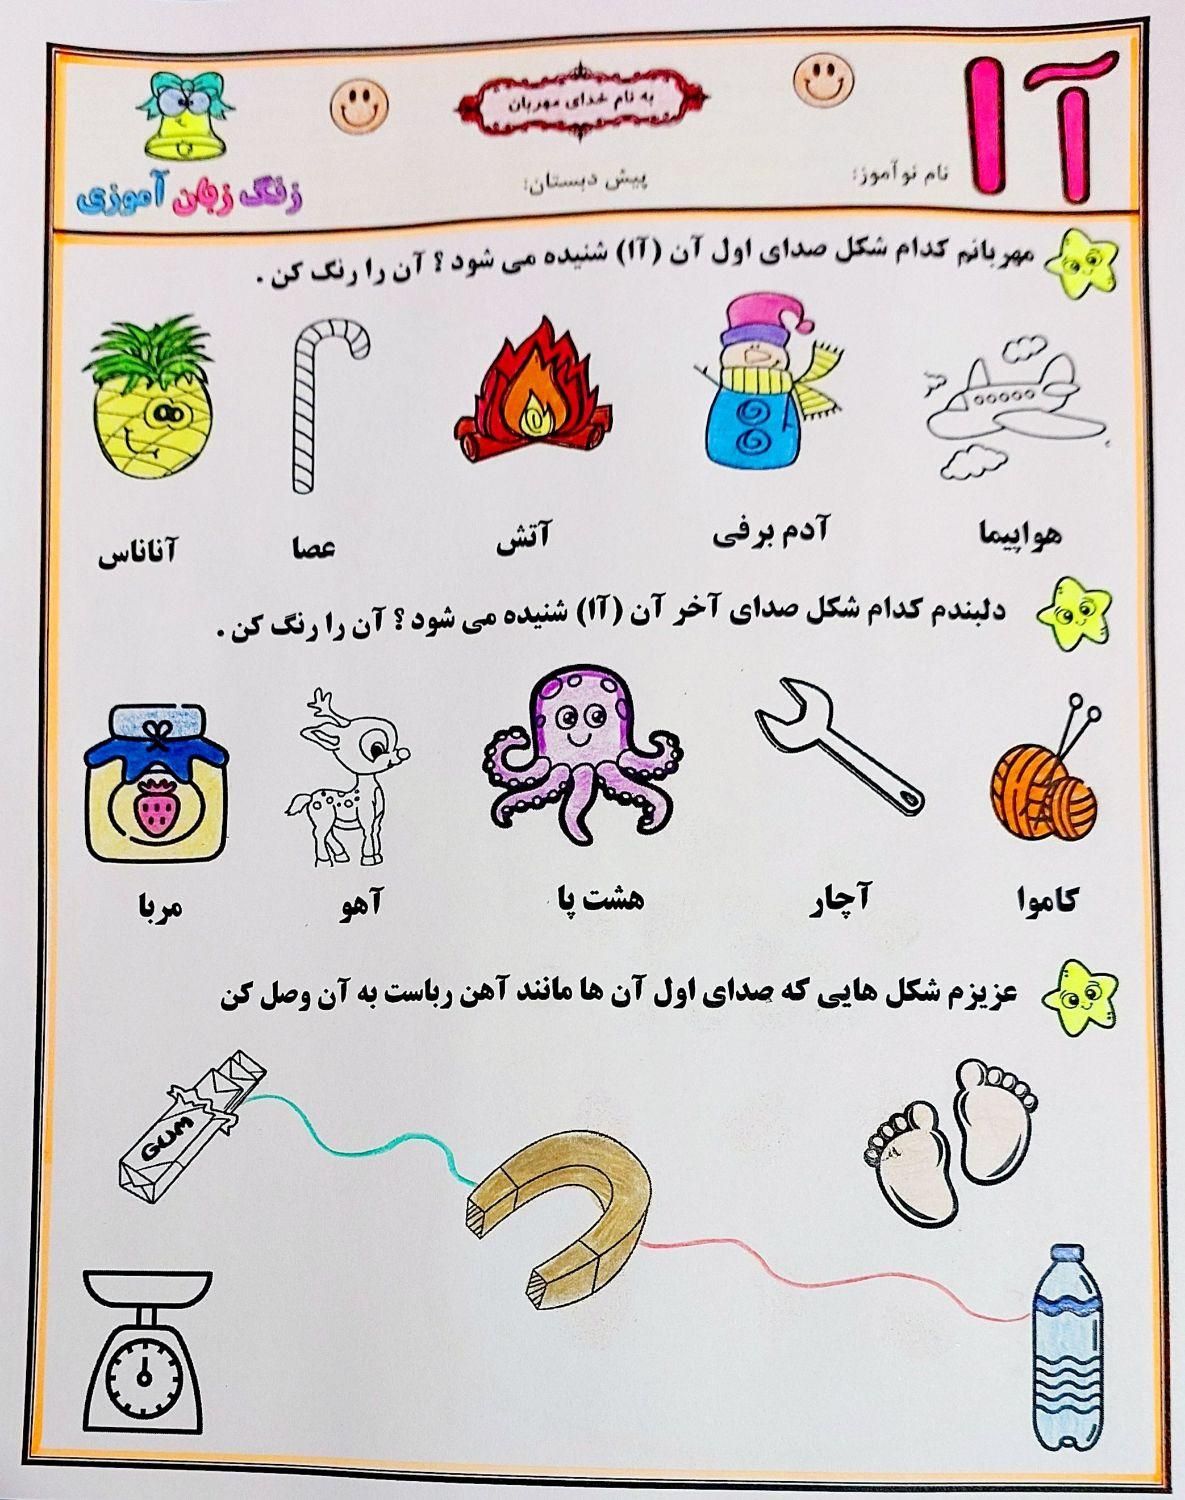 آ ا
به نام خدای مهربان
نام نوآموز:
پیش دبستان:
زنگ زبان آموزی
مهربانم کدام شکل صدای اول آن (آا) شنیده می شود ؟ آن را رنگ کن .
هواپیما
آدم برفی
آتش
عصا
آناناس
دلبندم کدام شکل صدای آخر آن (آا) شنیده می شود ؟ آن را رنگ کن .
کاموا
آچار
هشت پا
آهو
مربا
عزیزم شکل هایی که صدای اول آن ها مانند آهن رباست به آن وصل کن
GUM